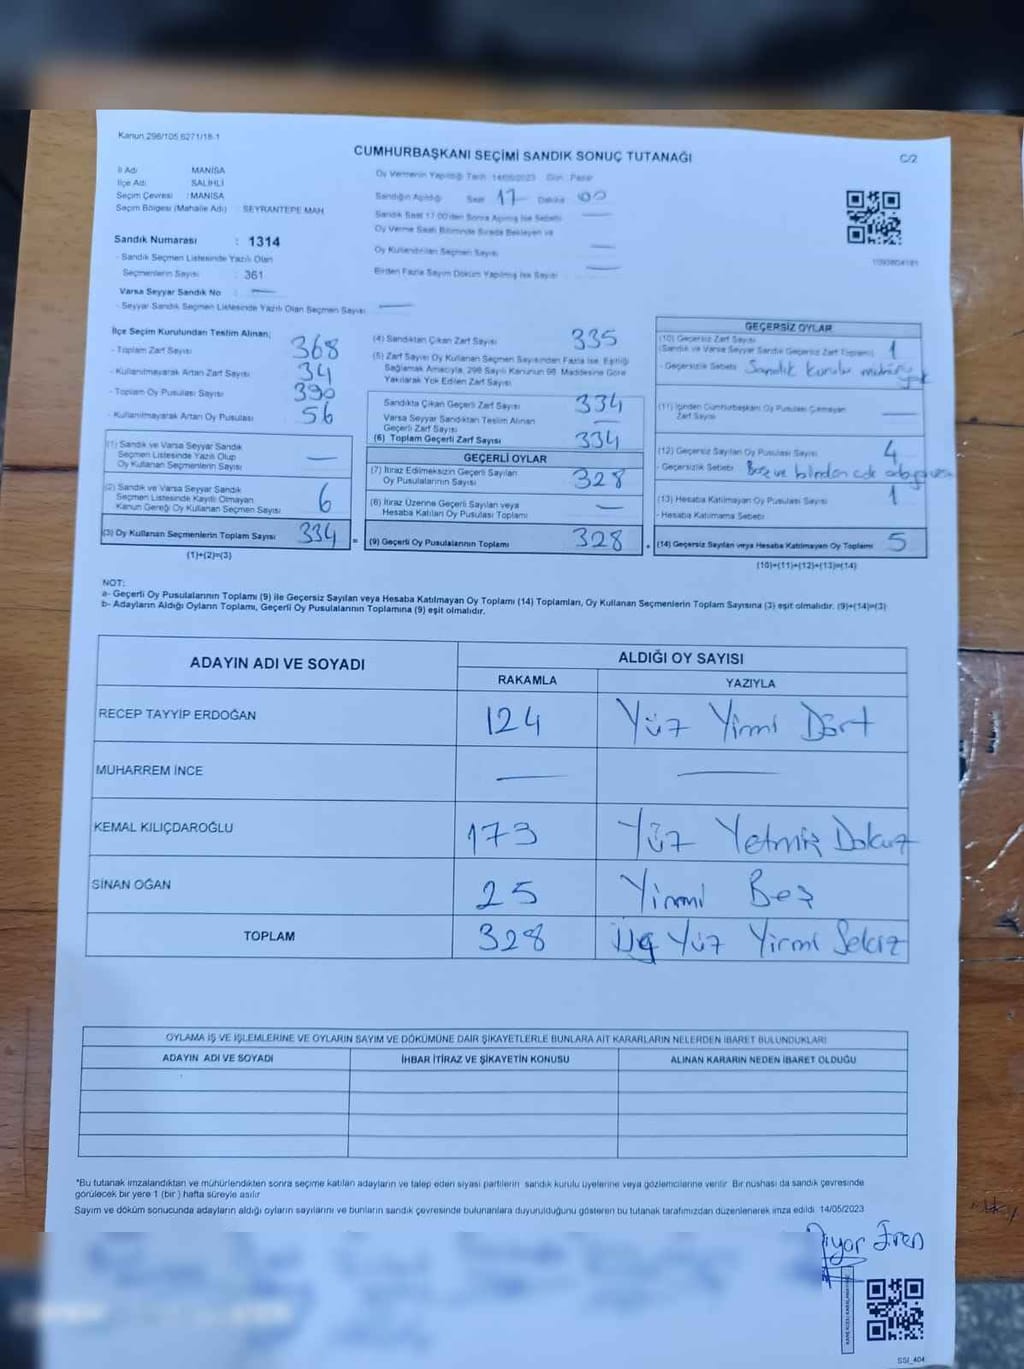 Kanun 298/105 6271/18-1
CUMHURBAŞKANI SEÇİMİ SANDIK SONUÇ TUTANAĞI
C/2
İl Adı MANİSA
İlçe Adı SALİHLİ
Seçim Çevresi : MANİSA
Seçim Bölgesi (Mahalle Adı) SEYRANTEPE MAH
Sandık Numarası : 1314
- Sandık Seçmen Listesinde Yazılı Olan
Seçmenlerin Sayısı : 361
Varsa Seyyar Sandık No : —
- Seyyar Sandık Seçmen Listesinde Yazılı Olan Seçmen Sayısı —
Oy Vermenin Yapıldığı Tarih 14/05/2023 Gün Pazar
Sandığın Açıldığı Saat 17 Dakika 00
Sandık Saat 17.00'den Sonra Açılmış İse Sebebi —
Oy Verme Saati Bitiminde Sırada Bekleyen ve
Oy Kullandırılan Seçmen Sayısı —
Birden Fazla Sayım Döküm Yapılmış İse Sayısı —
İlçe Seçim Kurulundan Teslim Alınan;
- Toplam Zarf Sayısı 368
- Kullanılmayarak Artan Zarf Sayısı 34
- Toplam Oy Pusulası Sayısı 390
- Kullanılmayarak Artan Oy Pusulası 56
(1) Sandık ve Varsa Seyyar Sandık
Seçmen Listesinde Yazılı Olup
Oy Kullanan Seçmenlerin Sayısı —
(2) Sandık ve Varsa Seyyar Sandık
Seçmen Listesinde Kayıtlı Olmayan
Kanun Gereği Oy Kullanan Seçmen Sayısı 6
(3) Oy Kullanan Seçmenlerin Toplam Sayısı 334
(1)+(2)=(3)
(4) Sandıktan Çıkan Zarf Sayısı 335
(5) Zarf Sayısı Oy Kullanan Seçmen Sayısından Fazla İse, Eşitliği
Sağlamak Amacıyla, 298 Sayılı Kanunun 98. Maddesine Göre
Yakılarak Yok Edilen Zarf Sayısı
Sandıkta Çıkan Geçerli Zarf Sayısı 334
Varsa Seyyar Sandıktan Teslim Alınan
Geçerli Zarf Sayısı —
(6) Toplam Geçerli Zarf Sayısı 334
GEÇERLİ OYLAR
(7) İtiraz Edilmeksizin Geçerli Sayılan
Oy Pusulalarının Sayısı 328
(8) İtiraz Üzerine Geçerli Sayılan veya
Hesaba Katılan Oy Pusulası Toplamı —
(9) Geçerli Oy Pusulalarının Toplamı 328
GEÇERSİZ OYLAR
(10) Geçersiz Zarf Sayısı
(Sandık ve Varsa Seyyar Sandık Geçersiz Zarf Toplamı) 1
- Geçersizlik Sebebi Sandık kurulu mührü yok
(11) İçinden Cumhurbaşkanı Oy Pusulası Çıkmayan
Zarf Sayısı —
(12) Geçersiz Sayılan Oy Pusulası Sayısı 4
- Geçersizlik Sebebi Boş ve birden çok
(13) Hesaba Katılmayan Oy Pusulası Sayısı 1
- Hesaba Katılmama Sebebi
(14) Geçersiz Sayılan veya Hesaba Katılmayan Oy Toplamı 5
(10)+(11)+(12)+(13)=(14)
NOT:
a- Geçerli Oy Pusulalarının Toplamı (9) ile Geçersiz Sayılan veya Hesaba Katılmayan Oy Toplamı (14) Toplamları, Oy Kullanan Seçmenlerin Toplam Sayısına (3) eşit olmalıdır. (9)+(14)=(3)
b- Adayların Aldığı Oyların Toplamı, Geçerli Oy Pusulalarının Toplamına (9) eşit olmalıdır.
ADAYIN ADI VE SOYADI ALDIĞI OY SAYISI
RAKAMLA YAZIYLA
RECEP TAYYİP ERDOĞAN 124 Yüz Yirmi Dört
MUHARREM İNCE — —
KEMAL KILIÇDAROĞLU 173 Yüz Yetmiş Dokuz
SİNAN OĞAN 25 Yirmi Beş
TOPLAM 328 Üç Yüz Yirmi Sekiz
OYLAMA İŞ VE İŞLEMLERİNE VE OYLARIN SAYIM VE DÖKÜMÜNE DAİR ŞİKAYETLERLE BUNLARA AİT KARARLARIN NELERDEN İBARET BULUNDUKLARI
ADAYIN ADI VE SOYADI İHBAR İTİRAZ VE ŞİKAYETİN KONUSU ALINAN KARARIN NEDEN İBARET OLDUĞU
*Bu tutanak imzalandıktan ve mühürlendikten sonra seçime katılan adayların ve talep eden siyasi partilerin sandık kurulu üyelerine veya gözlemcilerine verilir. Bir nüshası da sandık çevresinde
görülecek bir yere 1 (bir) hafta süreyle asılır
Sayım ve döküm sonucunda adayların aldığı oyların sayılarını ve bunların sandık çevresinde bulunanlara duyurulduğunu gösteren bu tutanak tarafımızdan düzenlenerek imza edildi. 14/05/2023
Diyar Eren
SSI_404